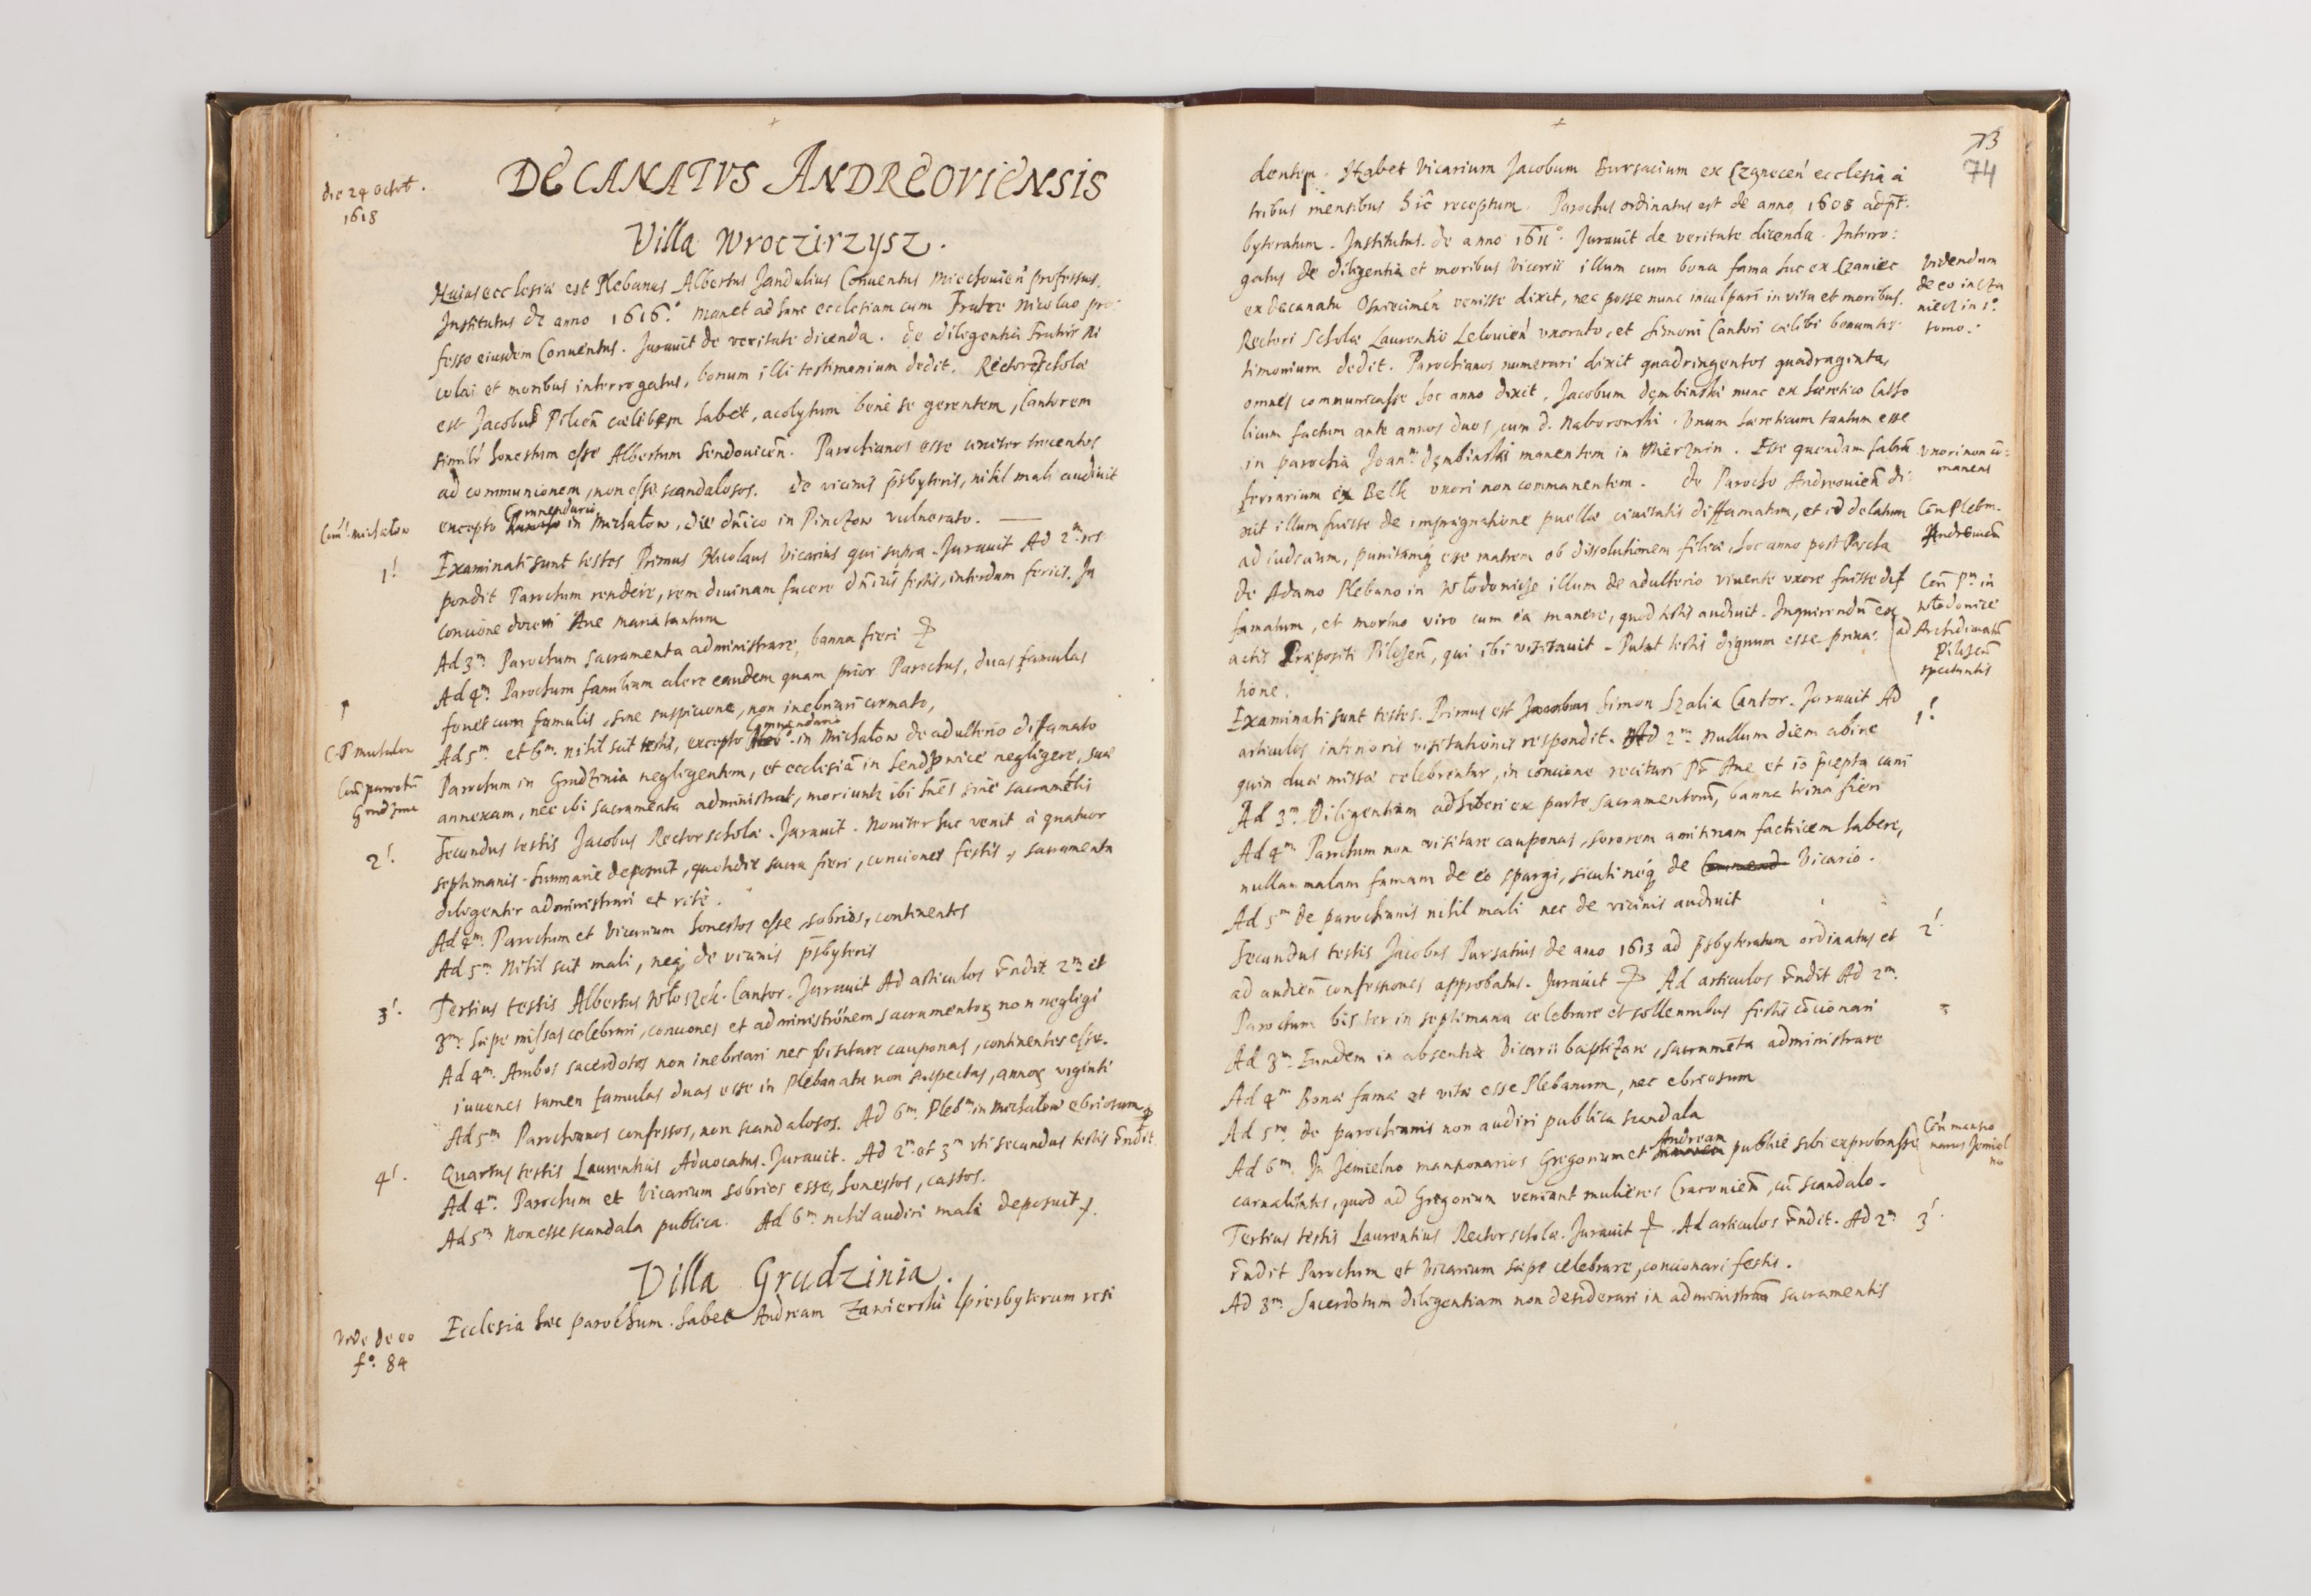 die 24 octob.
1618
DECANATVS ANDREOVIENSIS
Villa Wroczirzysz.
Huius ecclesiæ est Plebanus Albertus Jandulius Conuentus Miechouien professus.
Institutus de anno 1616.º manet ad hanc ecclesiam cum Fratre Nicolao pro:
fesso eiusdem Conuentus. Jurauit de veritate dicenda. de diligentia Fratris Ni
colai et moribus interrogatus, bonum illi testimonium dedit. Rectorem scholæ
est Jacobus Pilcen cælibem habet, acolytum bene se gerentem, Cantorem
simil'r honestum esse Albertum Sendouicen. Parochianos esse circiter trecentos
ad communionem, non esse scandalosos. de vicinis p̄sbyteris, nihil mali audiuit
Commendario
Con' Michałow
excepto in Michałow, die dn̄ico in Pinczow vulnerato.
1!
Examinati sunt testes Primus Nicolaus Vicarius qui supra. Jurauit Ad 2.m res
pondit Parochum residere, rem diuinam facere dn̄icis festis, interdum ferijs. In
concione doceri Aue Maria tantum
Ad 3.m Parochum sacramenta administrare, banna fieri
Ad 4.m Parochum familiam alere eandem quam prior Parochus, duas famulas
fouet cum famulis, sine suspicione, non inebriari
Commendario
C. P Michałow
Ad 5.m et 6.m nihil scit testis, excepto in Michałow de adulterio diffamato
Con' parochū
Grudzinæ
Parochum in Grudzinia negligentem, et ecclesiā in Sendzowice negligere, suæ
annexam, nec ibi sacramenta administrat, moriuntr ibi hn̄es sine sacramētis
2!
Secundus testis Jacobus Rector scholæ. Jurauit. Nouiter huc venit à quatuor
septimanis. Summarie deposuit, quotidie sacra fieri, conciones festis, sacramenta
diligenter administrari et rite.
Ad 4.m Parochum et Vicarium honestos esse, sobrios, continentes
Ad 5.m Nihil scit mali, neq; de vicinis p̄sbyteris
3!
Tertius testis Albertus Włoszek. Cantor. Jurauit Ad articulos r̄ndit. 2.m et
3.m Sæpe missas celebrari, conciones et administrōnem sacramentor non negligi
Ad 4.m Ambos sacerdotes non inebriari nec visitare cauponas, continentes esse.
iuuenes tamen famulas duas esse in Plebanatu non suspectas, annor viginti
Ad 5.m Parochianos confessos, non scandalosos. Ad 6.m Pleb.m in Michałow ebriosum
4!
Quartus testis Laurentius Aduocatus. Jurauit. Ad 2.m et 3.m vti secundus testis r̄ndit.
Ad 4.m Parochum et Vicarium sobrios esse, honestos, castos.
Ad 5.m Non esse scandala publica. Ad 6.m nihil audiri mali deposuit.
Villa Grudzinia.
Vide de eo
fº. 84
Ecclesia hæc parochum habet Andream Zawierski presbyterum resi
73
74
dentem. Habet Vicarium Jacobum Bursacium ex Czanecen' ecclesia à
tribus mensibus hîc receptum. Parochus ordinatus est de anno 1608 ad p̄r:
byteratum. Institutus. de anno 1611º. Jurauit de veritate dicenda. Interro:
gatus de diligentia et moribus Vicarii illum cum bona fama huc ex Czaniec
ex decanatu Osuiecimen venisse dixit, nec posse nunc inculpari in vita et moribus.
Videndum
de eo in Cza
niecz in 1º.
tomo.
Rectori scholæ Laurentio Lelouien' vxorato, et Simoni Cantori cælibi bonum tes
timonium dedit. Parochianos numerari dixit quadringentos quadraginta,
omnes communicasse hoc anno dixit, Jacobum dembinski nunc ex hæretico Catho
licum factum ante annos duos, cum d. Naborowski. Vnum hæreticum tantum esse
in parochia Joan.m dembinski manentem in Mierznin. Esse quendam fabrū
ferrarium ex Belk vxori non commanentem. de Parocho Andreouien di:
Vxori non cō:
manens
xit illum fuisse de impregnatione puellæ ciuitatis diffamatum, et id delatum
Con Plebm.
Andreouien
ad iudicium, punitamq; esse matrem ob dissolutionem filiæ, hoc anno post Pascha
de Adamo Plebano in Włodowice illum de adulterio viuente vxore fuisse dif
famatum, et mortuo viro cum ea manere, quod testis audiuit. Inquirendū ex
actis Præpositi Pilcen, qui ibi visitauit. Putat testis dignum esse priua:
tione.
Con' P.m in
Włodowice
ad Archidinatū
Pilcen
spectantis
Examinati sunt testes. Primus est Simon Szalia Cantor. Jurauit Ad
1!
articulos interioris visitationis respondit. Ad 2.m Nullum diem abire
quin duæ missæ celebrentur, in concione recitari Pr̄ Aue et 10 p̄cepta cani
Ad 3.m Diligentiam adhiberi ex parte sacramentorū, banna trina fieri
Ad 4.m Parochum non visitare cauponas, sororem amitinam factricem habere,
nullam malam famam de eo spargi, sicuti neq; de Vicario.
Ad 5.m de parochianis nihil mali nec de vicinis audiuit
2!
Secundus testis Jacobus Pursatius de anno 1613 ad p̄sbyteratum ordinatus et
ad audien confessiones approbatus. Jurauit Ad articulos r̄ndit Ad 2.m
Parochum bis ter in septimana celebrare et sollennibus festis cōcionari
Ad 3.m Eundem in absentia Vicarii baptizare, sacramēta administrare
Ad 4.m Bonæ famæ et vitæ esse Plebanum, nec ebriosum
Ad 5.m de parochianis non audiri publica scandala
Andream
Ad 6.m In Jemielno mansionarios Gregorium et publice sibi exprobrasse
Con' mansio
narios Jemiel
no
carnalitates, quod ad Gregorium veniant mulieres Cracouien, cū scandalo.
Tertius testis Laurentius Rector scholæ. Jurauit. Ad articulos r̄ndit. Ad 2.m
3!
r̄ndit Parochum et Vicarium sæpe celebrare, concionari festis.
Ad 3.m Sacerdotum diligentiam non desiderari in administrān sacramentis